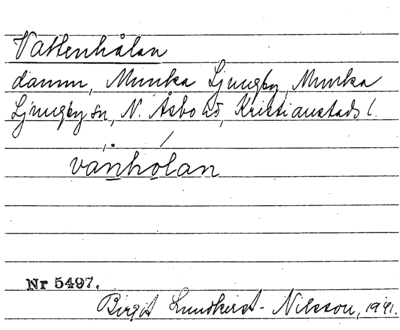 Vattenhålan
damm, Munka Ljungby, Munka
Ljungby sn, N. Åsbo hd, Kristianstads l.
vanholan
Nr 5497.
Birgit Lundkvist-Nilsson, 1941.